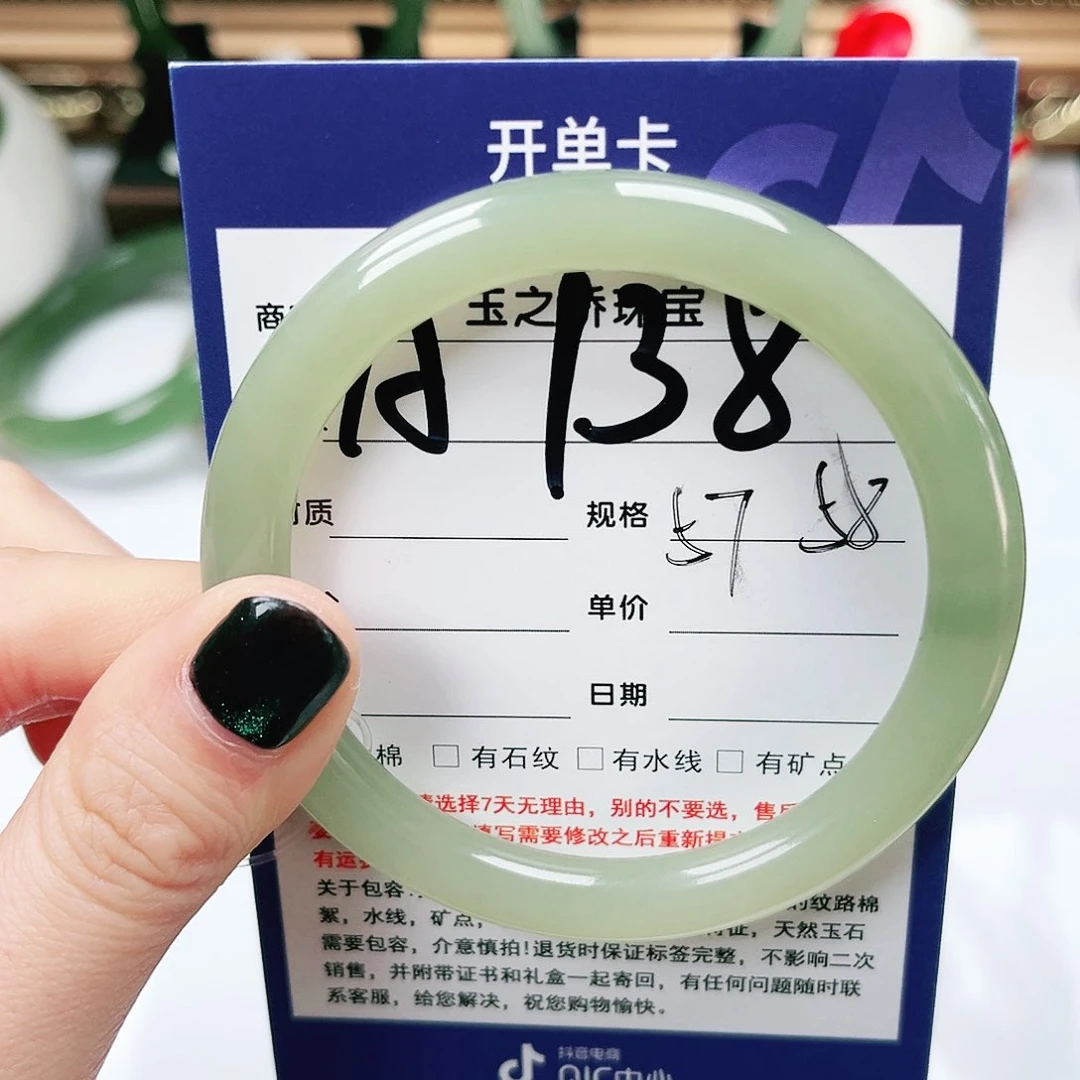 开单卡
商 玉之桥珠宝
138
材质 规格 57 58
单价
日期
棉 □ 有石纹 □ 有水线 □ 有矿点
请选择7天无理由，别的不要选，售后
填写需要修改之后重新提交
有运费
关于包容 的纹路棉
絮，水线，矿点， 特征，天然玉石
需要包容，介意慎拍！退货时保证标签完整，不影响二次
销售，并附带证书和礼盒一起寄回，有任何问题随时联
系客服，给您解决，祝您购物愉快。
抖音电商
QIC中心